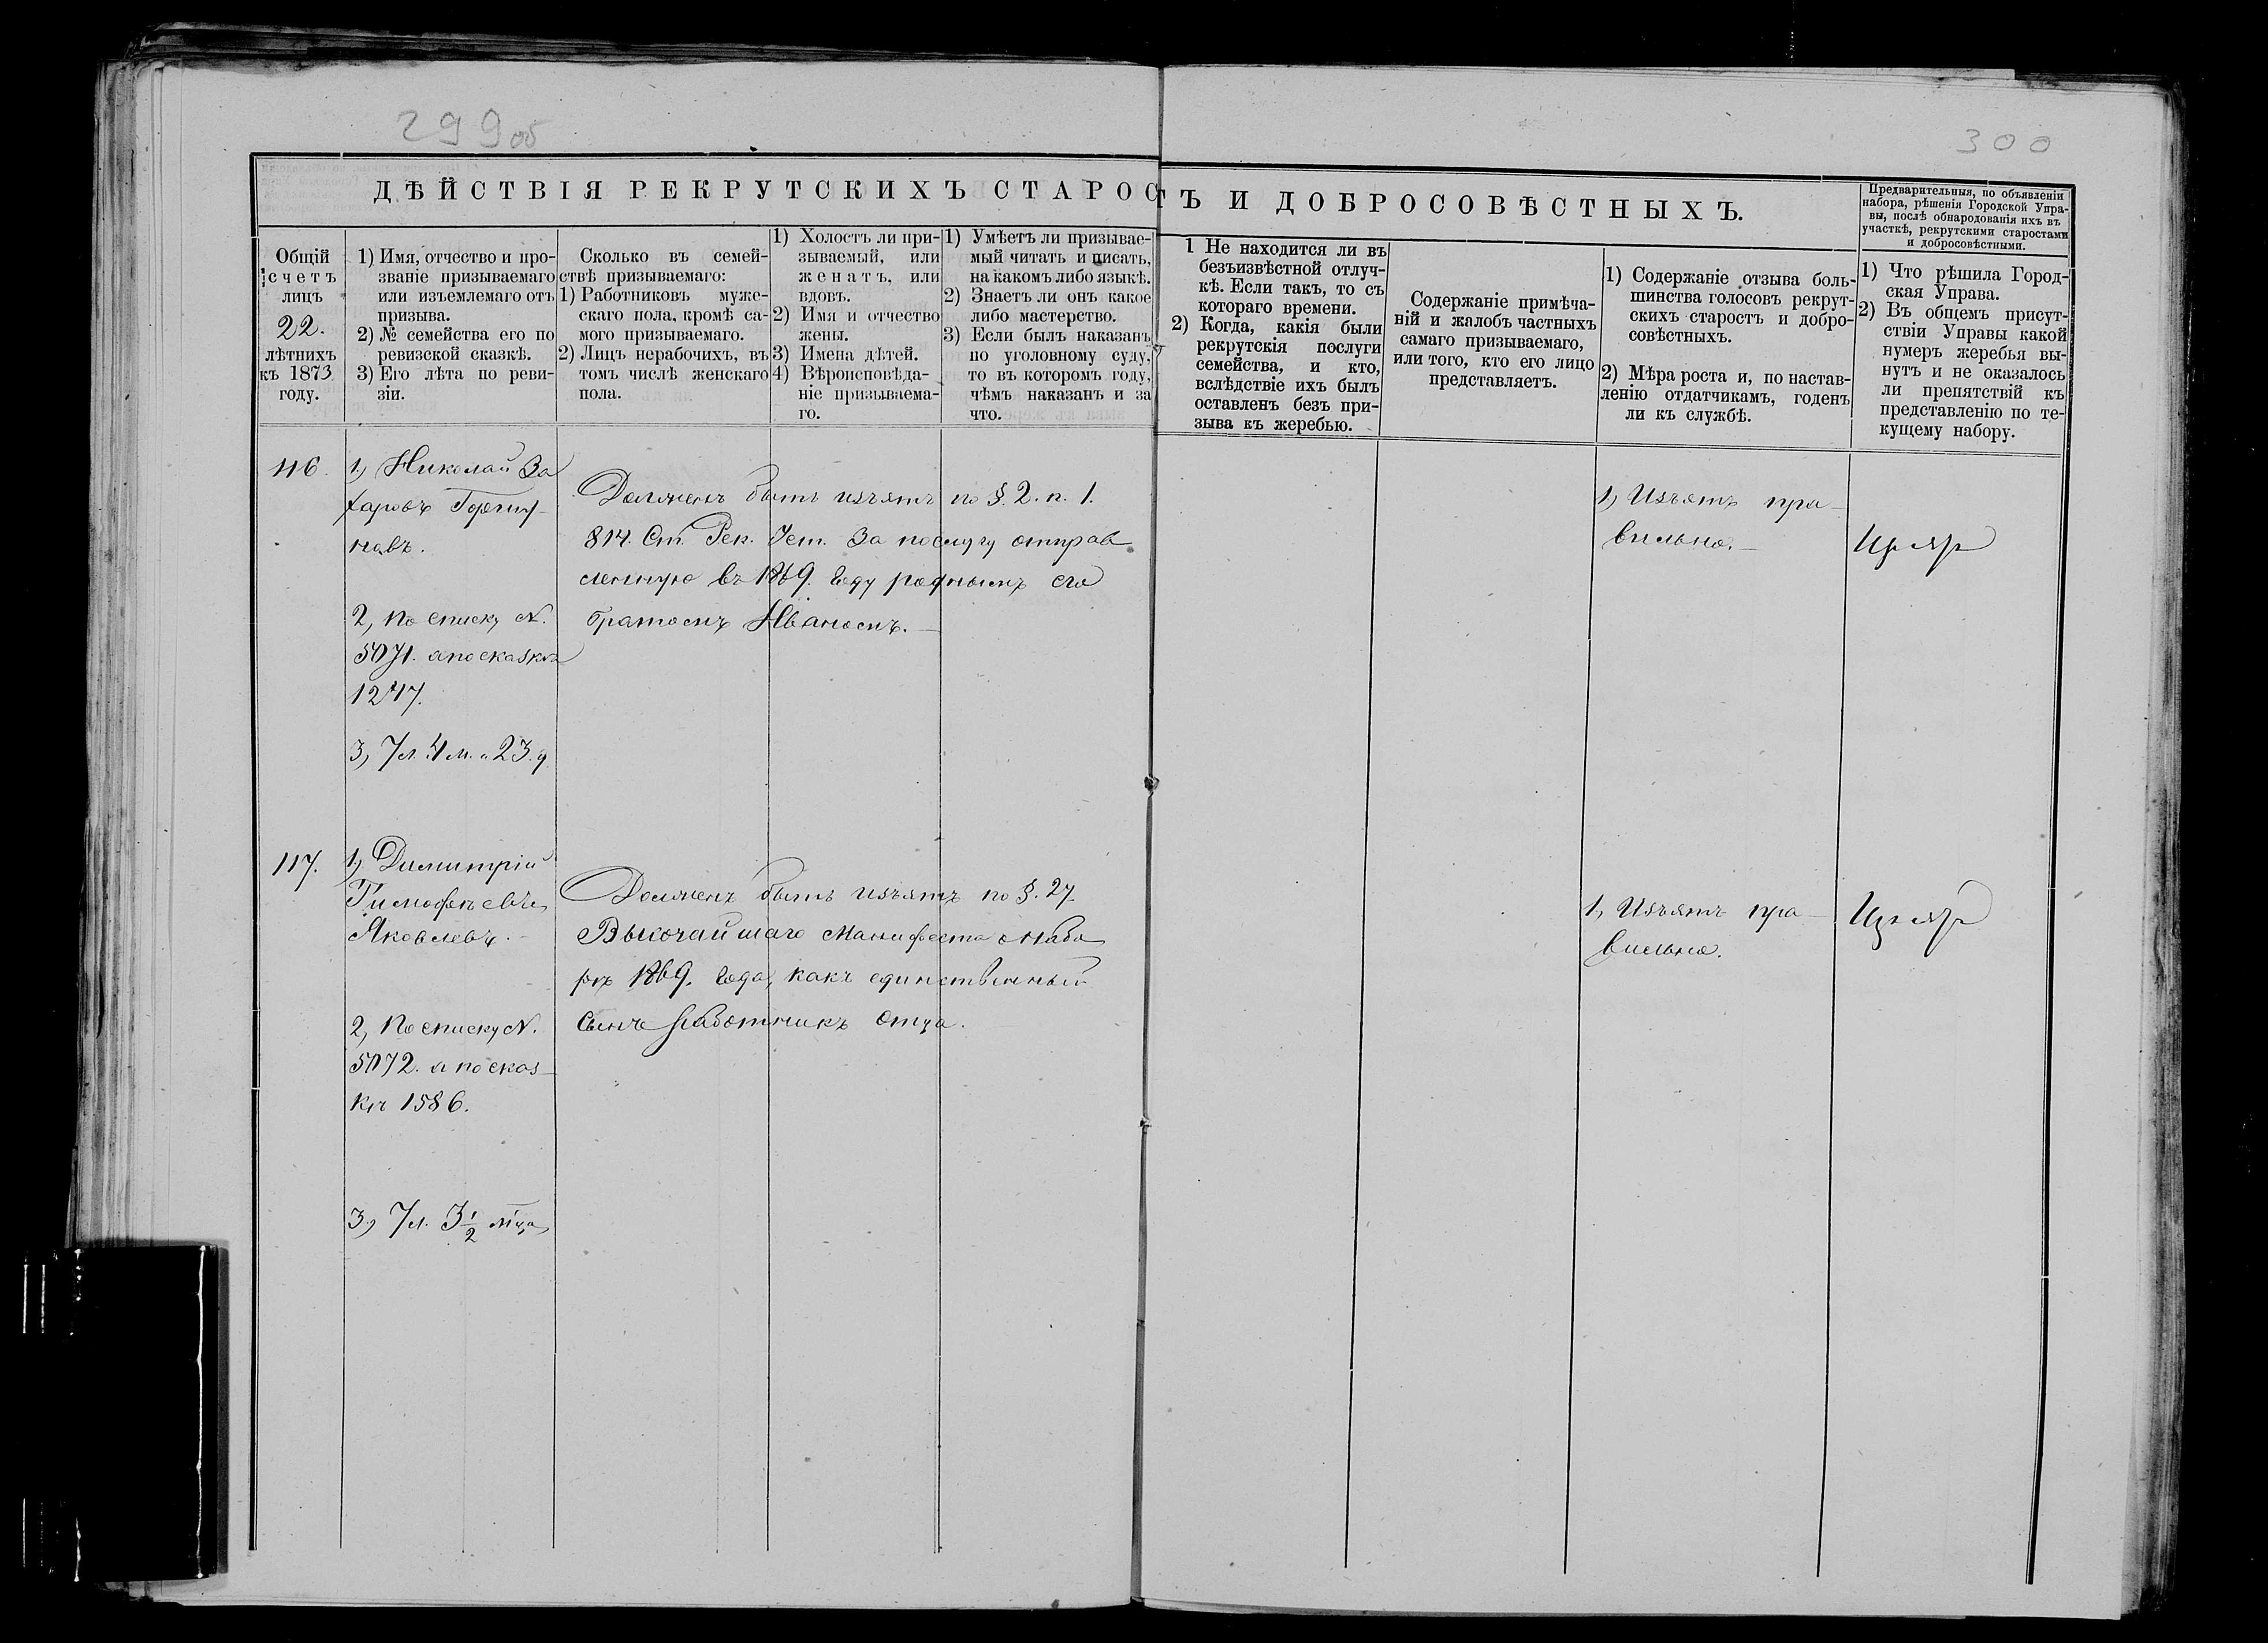 299 об
300
ДѢЙСТВІЯ РЕКРУТСКИХЪ СТАРОСТЪ И ДОБРОСОВѢСТНЫХЪ.
Предварительныя, по объявленіи
набора, рѣшенія Городской Упра-
вы, послѣ обнародованія ихъ въ
участкѣ, рекрутскими старостами
и добросовѣстными.
Общій
счетъ
лицъ
22.
лѣтнихъ
къ 1873
году.
1) Имя, отчество и про-
званіе призываемаго
или изъемлемаго отъ
призыва.
2) № семейства его по
ревизской сказкѣ.
3) Его лѣта по реви-
зіи.
Сколько въ семей-
ствѣ призываемаго:
1) Работниковъ муже-
скаго пола, кромѣ са-
мого призываемаго.
2) Лицъ нерабочихъ, въ
томъ числѣ женскаго
пола.
1) Холостъ ли при-
зываемый, или
женатъ, или
вдовъ.
2) Имя и отчество
жены.
3) Имена дѣтей.
4) Вѣроисповѣда-
ніе призываема-
го.
1) Умѣетъ ли призывае-
мый читать и писать,
на какомъ либо языкѣ.
2) Знаетъ ли онъ какое
либо мастерство.
3) Если былъ наказанъ
по уголовному суду,
то въ которомъ году,
чѣмъ наказанъ и за
что.
1 Не находится ли въ
безъизвѣстной отлуч-
кѣ. Если такъ, то съ
котораго времени.
2) Когда, какія были
рекрутскія послуги
семейства, и кто,
вслѣдствіе ихъ былъ
оставленъ безъ при-
зыва къ жеребью.
Содержаніе примѣча-
ній и жалобъ частныхъ
самаго призываемаго,
или того, кто его лицо
представляетъ.
1) Содержаніе отзыва боль-
шинства голосовъ рекрут-
скихъ старостъ и добро-
совѣстныхъ.
2) Мѣра роста и, по настав-
ленію отдатчикамъ, годенъ
ли къ службѣ.
1) Что рѣшила Город-
ская Управа.
2) Въ общемъ присут-
ствіи Управы какой
нумеръ жеребья вы-
нутъ и не оказалось
ли препятствій къ
представленію по те-
кущему набору.
116.
1) Николай За
харовъ
2, по списку N.
5071. а по сказкѣ
1247.
3, 7 л. 4 м. 23. д
Долженъ быть изъятъ по §. 2. п. 1.
814. Ст. Рек. Уст. За послугу отправ
ленную въ 1869. году роднымъ его
братомъ Иваномъ.
1, Изъятъ пра-
вильно.
117.
1) Димитрій
Тимофѣевъ
Яковлевъ.
2, По списку N.
5072. а по сказ-
кѣ 1586.
3, 7 л. 3 1/2 мца
Долженъ быть изъятъ по §. 27.
Высочайшаго Манифеста о набо
рѣ 1869. года, какъ единственный
сынъ работникъ отца.
1, Изъятъ пра-
вильно.